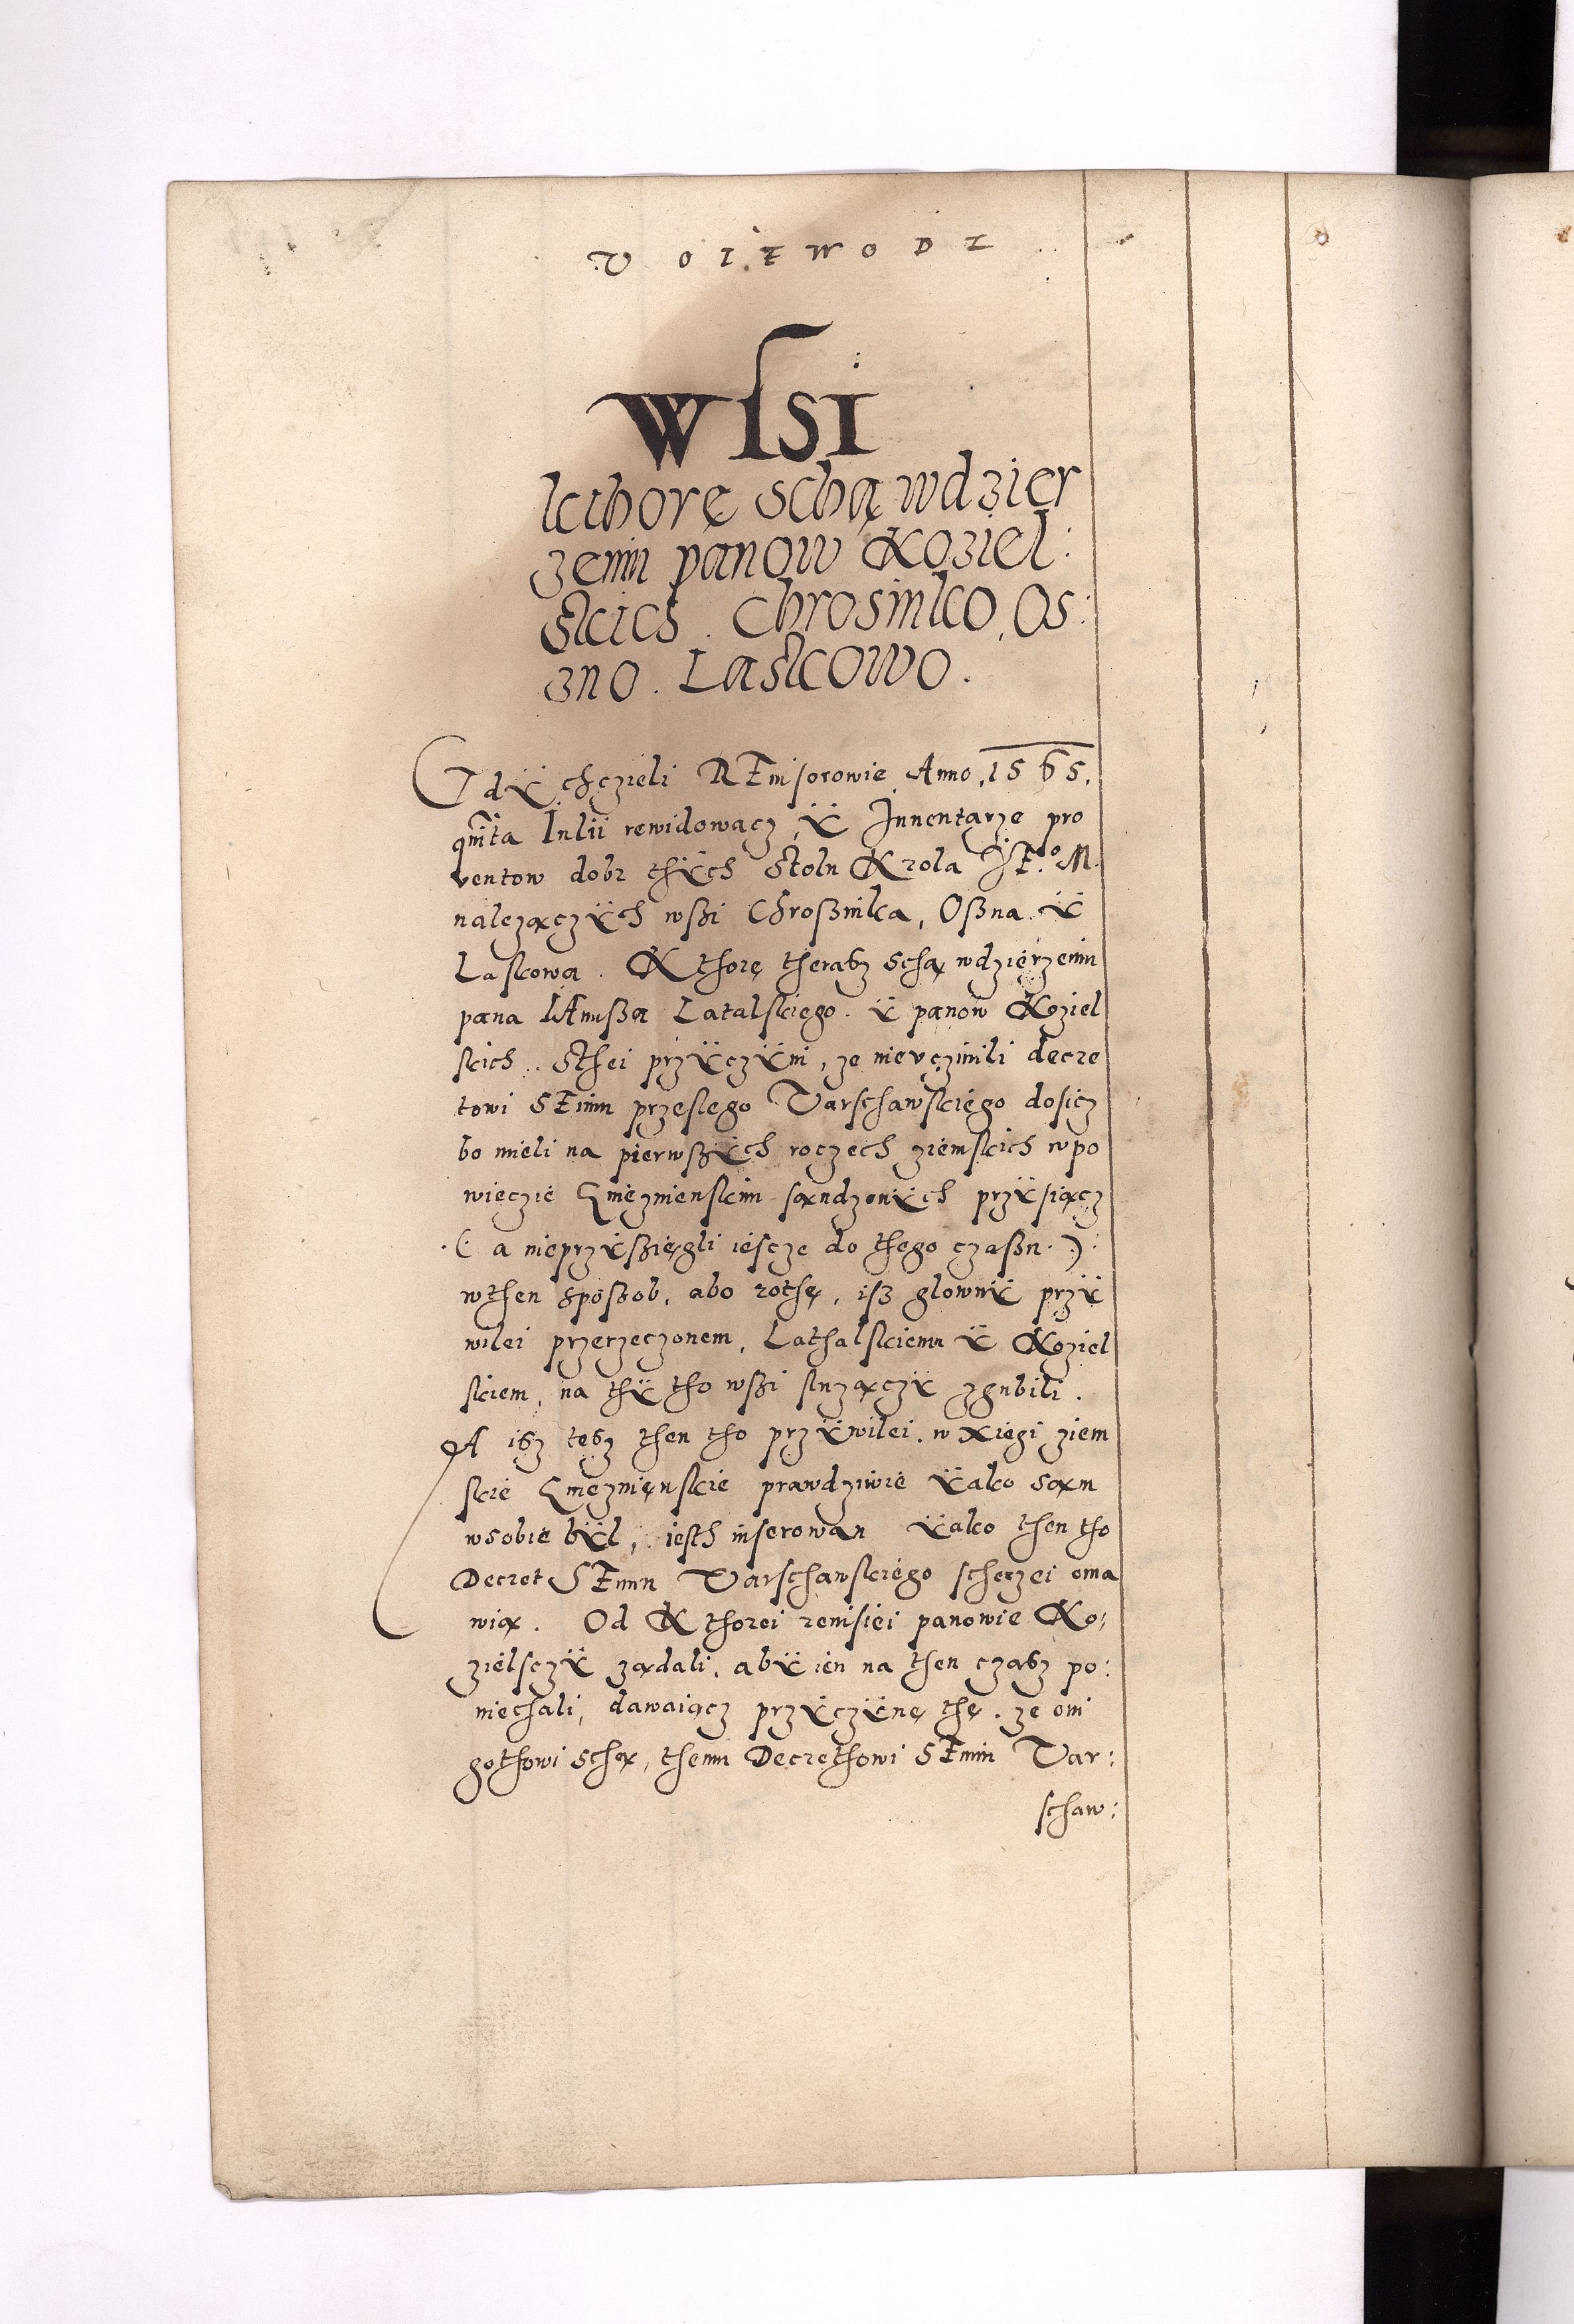 VOIEWODZ
WSSI
kthorę schą wdzier
zeniu panow Koziel:
skich. Chrosinko, Os:
zno. Laskowo.
Gdÿ chczieli REuisorowie Anno, 1565.
quinta Iulii rewidowacz, ÿ Inuentarze pro
ventow dobr thÿch Stolu Krola JE.º M.
nalezączÿch wßi Chroßinka, Oßna ÿ
Laskowa. Kthorę therasz schą wdzierzeniu
pana IAnußa Latalskiego. ÿ panow Koziel
skich. Sthei przÿczÿni, ze nievczinili decre
towi SEimu przeslego Varschawskiego dosicz
bo mieli na pierwßÿch roczech ziemskich wpo
wieczie Gnieznienskim sąndzonÿch przÿsiącz
(a nieprzÿßięgli iescze do thego czaßu.)
wthen sposzob, abo rothę, isz glownÿ przÿ
wilei przerzeczonem, Lathalskiemu ÿ Koziel
skiem, na thÿ tho wßi sluzączÿ zgubili.
A isz tesz then tho przÿwilei. w Xiegi ziem
skie Gnieznienskie prawdziwie ÿako sąm
wsobie bÿl, iesth inserowan ÿako then tho
Decret SEimu Varschawskiego scherzei oma
wią. Od Kthorei reuisiei panowie Ko:
zielsczÿ ządali, abÿ ieÿ na then czasz po:
niechali, dawaiącz przÿczÿnę thę. ze oni
gothowi schą, themu Decrethowi SEimu Var:
schaw: